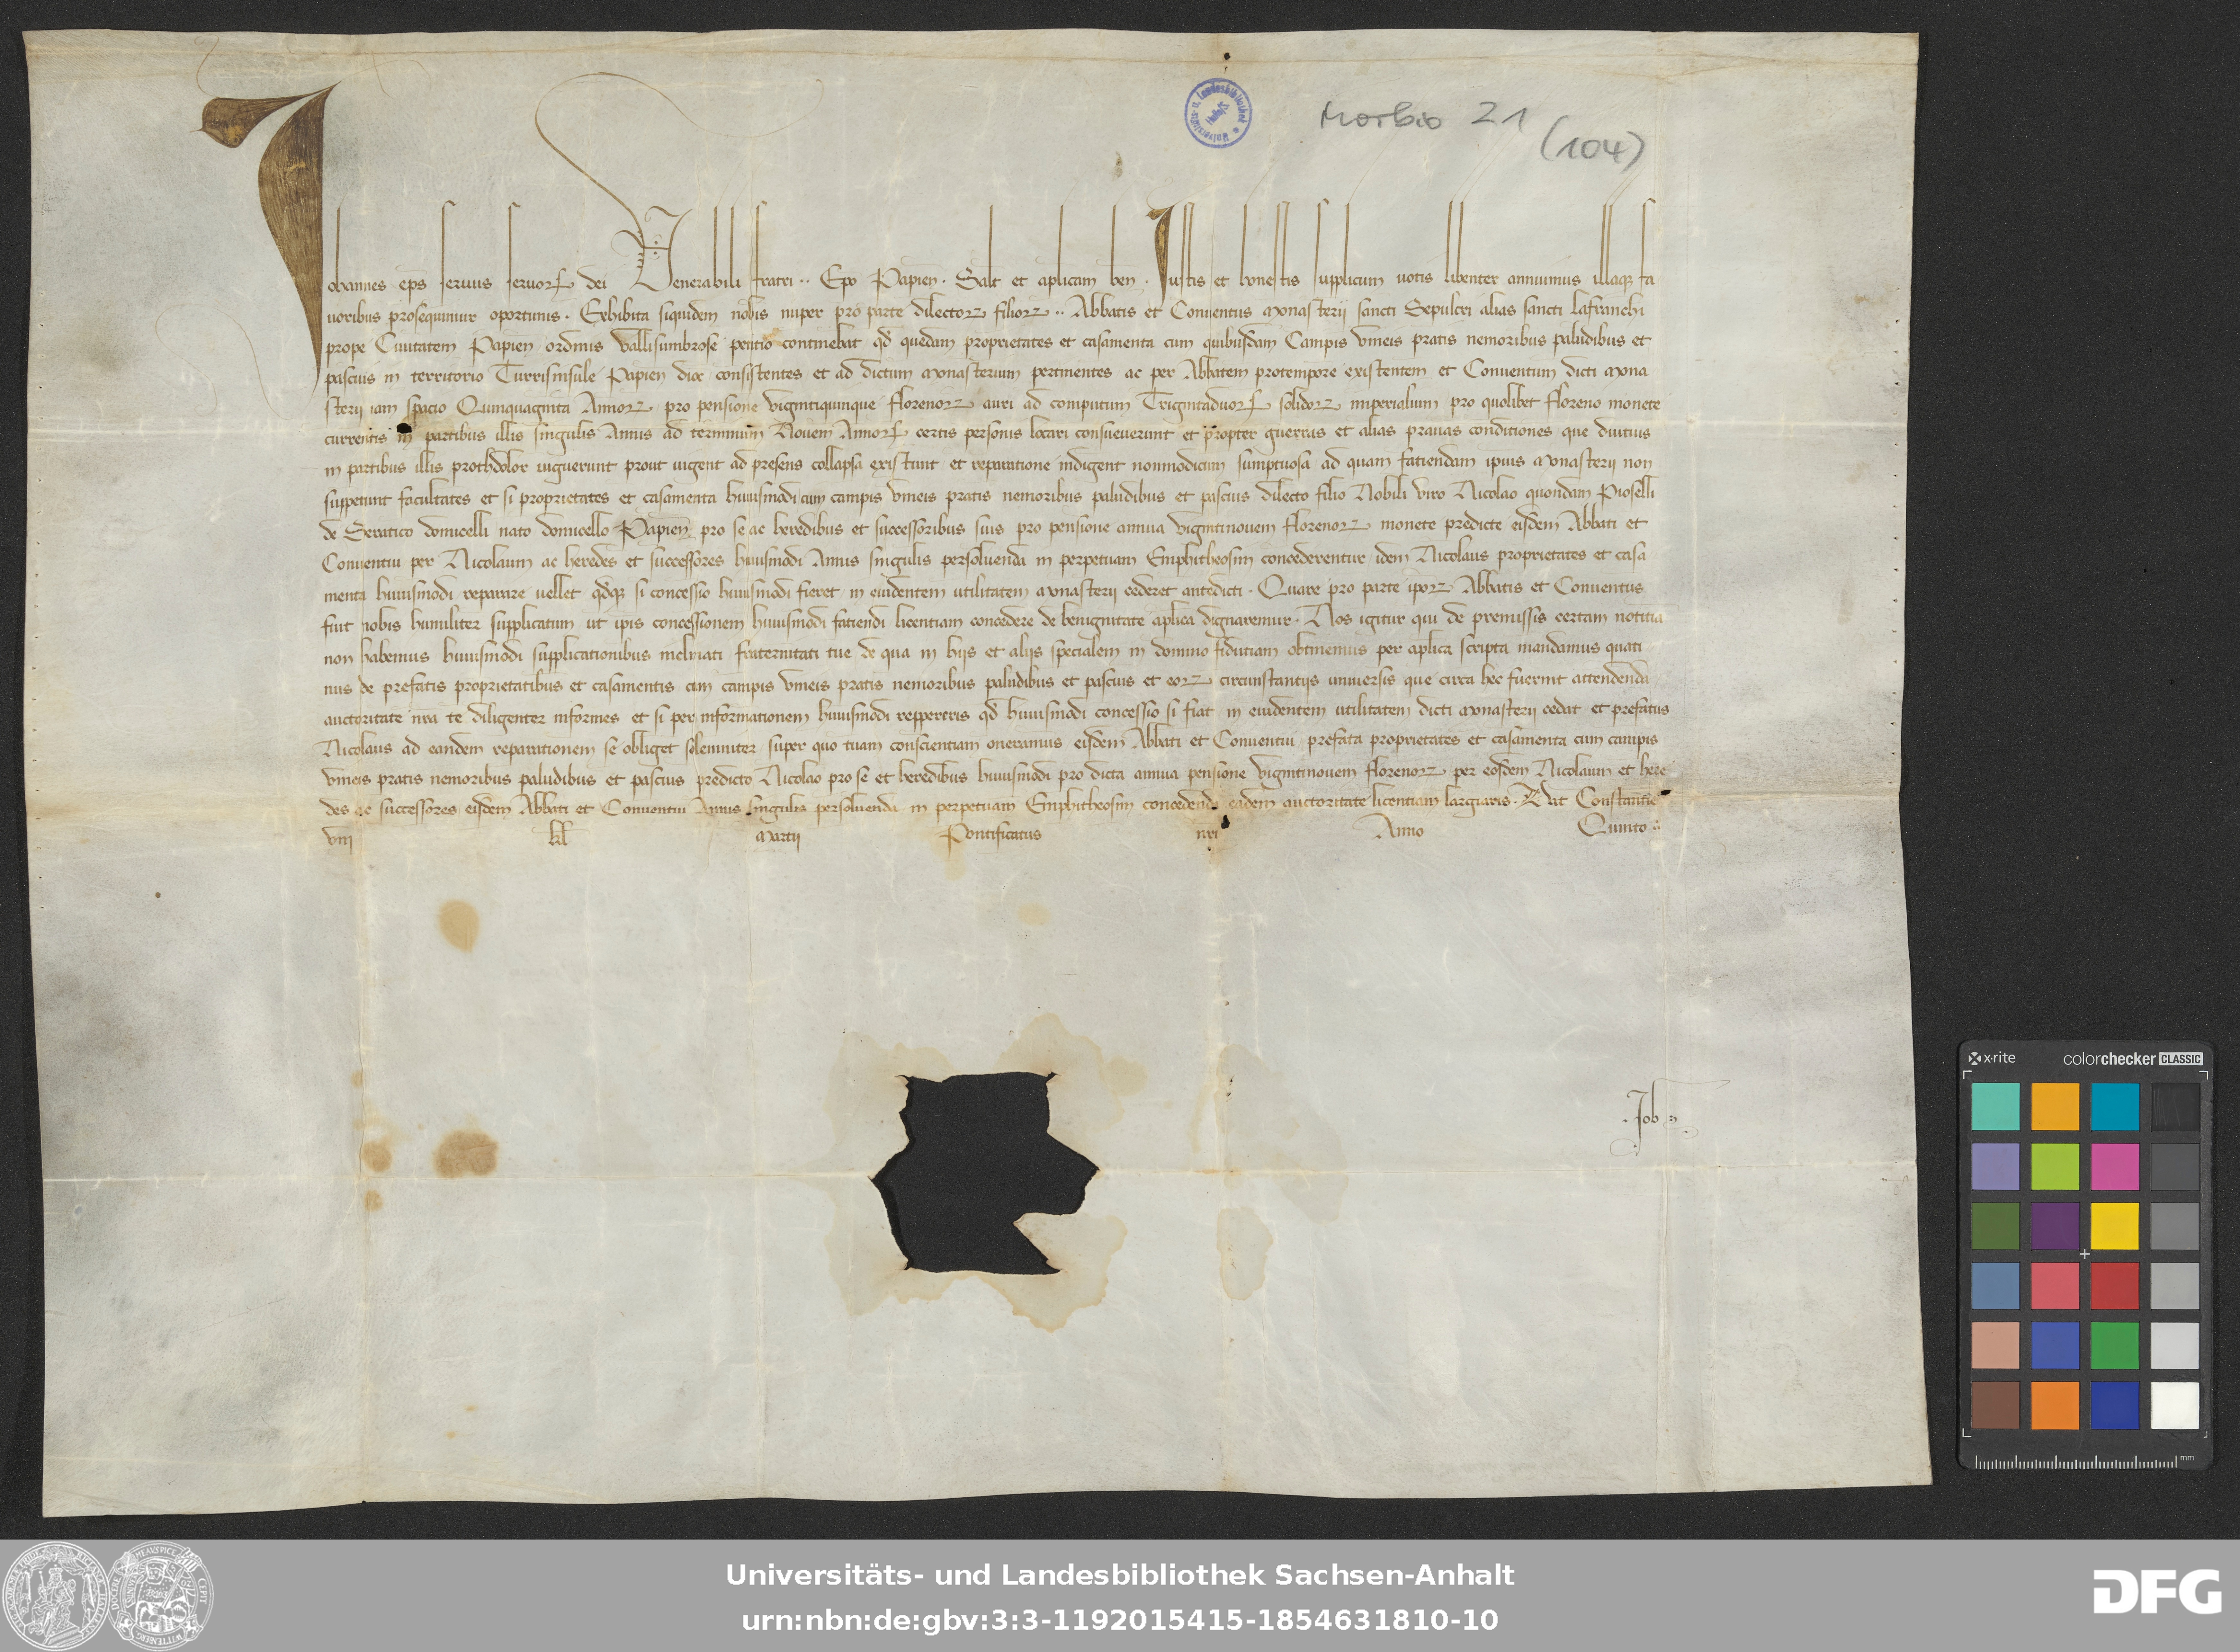 Morbio 21
(104)
Johannes eps seruus seruorꝝ dei Venerabili fratri ·· Epo Papien · Salt et aplicam ben · Justis et honestis supplicum uotis libenter annuimus illaqꝫ fa
uoribus prosequimur oportunis · Exhibita siquidem nobis nuper pro parte dilectorꝝ filiorꝝ ·· Abbatis et Conuentus Monasterij sancti Sepulcri alias sancti Lafranchi
prope Ciuitatem Papien ordinis Vallisumbrose petitio continebat qd quedam proprietates et casamenta cum quibusdam Campis vineis pratis nemoribus paludibus et
pascuis in territorio Turrisinsule Papien dioc consistentes et ad dictum Monasterium pertinentes ac per Abbatem protempore existentem et Conuentum dicti Mona
sterij iam spacio Quinquaginta Annorꝝ pro pensione vigintiquinque florenorꝝ auri ad computum Trigintaduorꝝ solidorꝝ imperialium pro quolibet floreno monete
currentis in partibus illis singulis Annis ad terminum Nouem Annorꝝ certis personis locari consueuerunt et propter guerras et alias prauas conditiones que diutius
in partibus illis prothdolor uiguerunt prout uigent ad presens collapsa existunt et reparatione indigent nonmodicum sumptuosa ad quam fatiendam ipius Monasterij non
suppetunt facultates et si proprietates et casamenta huiusmodi cum campis vineis pratis nemoribus paludibus et pascuis dilecto filio Nobili viro Nicolao quondam Pioselli
de Seratico domicelli nato domicello Papien pro se ac heredibus et successoribus suis pro pensione annua vigintinouem florenorꝝ monete predicte eisdem Abbati et
Conuentui per Nicolaum ac heredes et successores huiusmodi Annis singulis persoluenda in perpetuam Emphitheosim concederentur idem Nicolaus proprietates et casa
menta huiusmodi reparare uellet qdqꝫ si concessio huiusmodi fieret in euidentem utilitatem Monasterij cederet antedicti · Quare pro parte iporꝝ Abbatis et Conuentus
fuit nobis humiliter supplicatum ut ipis concessionem huiusmodi fatiendi licentiam concedere de benignitate aplica dignaremur · Nos igitur qui de premissis certam notitia
non habemus huiusmodi supplicationibus inclinati fraternitati tue de qua in hijs et alijs specialem in domino fidutiam obtinemus per aplica scripta mandamus quati
nus de prefatis proprietatibus et casamentis cum campis vineis pratis nemoribus paludibus et pascuis et eorꝝ circunstantijs uniuersis que circa hec fuerint attendenda
auctoritate nra te diligenter informes et si per informationem huiusmodi reppereris qd huiusmodi concessio si fiat in euidentem utilitatem dicti Monasterij cedat et prefatus
Nicolaus ad eandem reparationem se obliget solemniter super quo tuam conscientiam oneramus eisdem Abbati et Conuentui prefata proprietates et casamenta cum campis
vineis pratis nemoribus paludibus et pascuis predicto Nicolao pro se et heredibus huiusmodi pro dicta annua pensione vigintinouem florenorꝝ per eosdem Nicolaum et here
des ac successores eisdem Abbati et Conuentui Annis singulis persoluenda in perpetuam Emphitheosim concedendi eadem auctoritate licentiam largiaris · Dat Constantie
viij kl Martij Pontificatus nri Anno Quinto
Job
x-rite colorchecker CLASSIC
mm
Universitäts- und Landesbibliothek Sachsen-Anhalt
urn:nbn:de:gbv:3:3-1192015415-1854631810-10
DFG